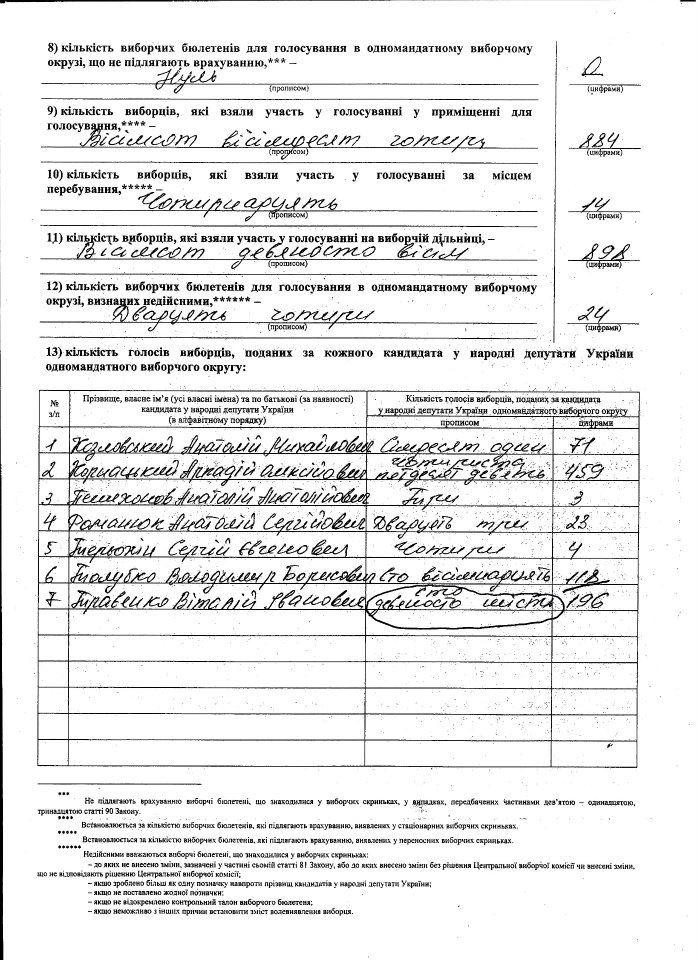 8) кількість виборчих бюлетенів для голосування в одномандатному виборчому
окрузі, що не підлягають врахуванню,*** –
Нуль
0
(прописом)
(цифрами)
9) кількість виборців, які взяли участь у голосуванні у приміщенні для
голосування,**** –
Вісімсот вісімдесят чотири
884
(прописом)
(цифрами)
10) кількість виборців, які взяли участь у голосуванні за місцем
перебування,***** –
Чотирнадцять
14
(прописом)
(цифрами)
11) кількість виборців, які взяли участь у голосуванні на виборчій дільниці, –
Вісімсот девяносто вісім
898
(прописом)
(цифрами)
12) кількість виборчих бюлетенів для голосування в одномандатному виборчому
окрузі, визнаних недійсними,****** –
Двадцять чотири
24
(прописом)
(цифрами)
13) кількість голосів виборців, поданих за кожного кандидата у народні депутати України
одномандатного виборчого округу:
№
з/п
Прізвище, власне ім'я (усі власні імена) та по батькові (за наявності)
кандидата у народні депутати України
(в алфавітному порядку)
Кількість голосів виборців, поданих за кандидата
у народні депутати України одномандатного виборчого округу
прописом
цифрами
1 Козловський Анатолій Михайлович Сімдесят один 71
2 Корнацький Аркадій Олексійович Чотириста петдесят девять 459
3 Анатолій Анатолійович Три 3
4 Романюк Анатолій Сергійович Двадцять три 23
5 Сергій Євгенович Чотири 4
6 Володимир Борисович Сто вісімнадцять 118
7 Травенко Віталій Іванович сто девяносто шість 196
***
Не підлягають врахуванню виборчі бюлетені, що знаходилися у виборчих скриньках, у випадках, передбачених частинами дев'ятою – одинадцятою,
тринадцятою статті 90 Закону.
****
Встановлюється за кількістю виборчих бюлетенів, які підлягають врахуванню, виявлених у стаціонарних виборчих скриньках.
*****
Встановлюється за кількістю виборчих бюлетенів, які підлягають врахуванню, виявлених у переносних виборчих скриньках.
******
Недійсними вважаються виборчі бюлетені, що знаходилися у виборчих скриньках:
– до яких не внесено зміни, зазначені у частині сьомій статті 81 Закону, або до яких внесено зміни без рішення Центральної виборчої комісії чи внесені зміни,
що не відповідають рішенню Центральної виборчої комісії;
– якщо зроблено більш як одну позначку навпроти прізвищ кандидатів у народні депутати України;
– якщо не поставлено жодної позначки;
– якщо не відокремлено контрольний талон виборчого бюлетеня;
– якщо неможливо з інших причин встановити зміст волевиявлення виборця.